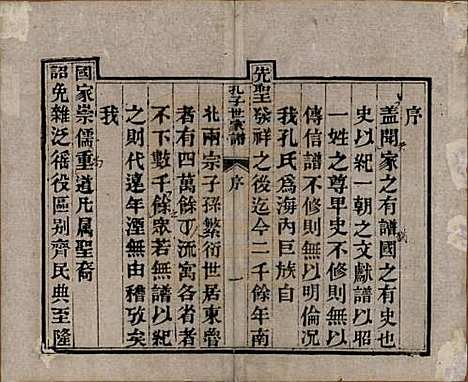 序
蓋聞家之有譜國之有史也
史以紀一朝之文獻譜以昭
一姓之尊卑史不修則無以
傳信譜不修則無以明倫況
我孔氏爲海內巨族自
先聖發祥之後迄今二千餘年南
孔子世家譜
序
一
北兩宗子孫繁衍世居東魯
者有四萬餘丁流寓各省者
不下數千餘眾若無譜以紀
之則代遠年湮無由稽攷矣
我
國家崇儒重道凡属聖裔
詔免雜泛徭役區别齊民典至隆